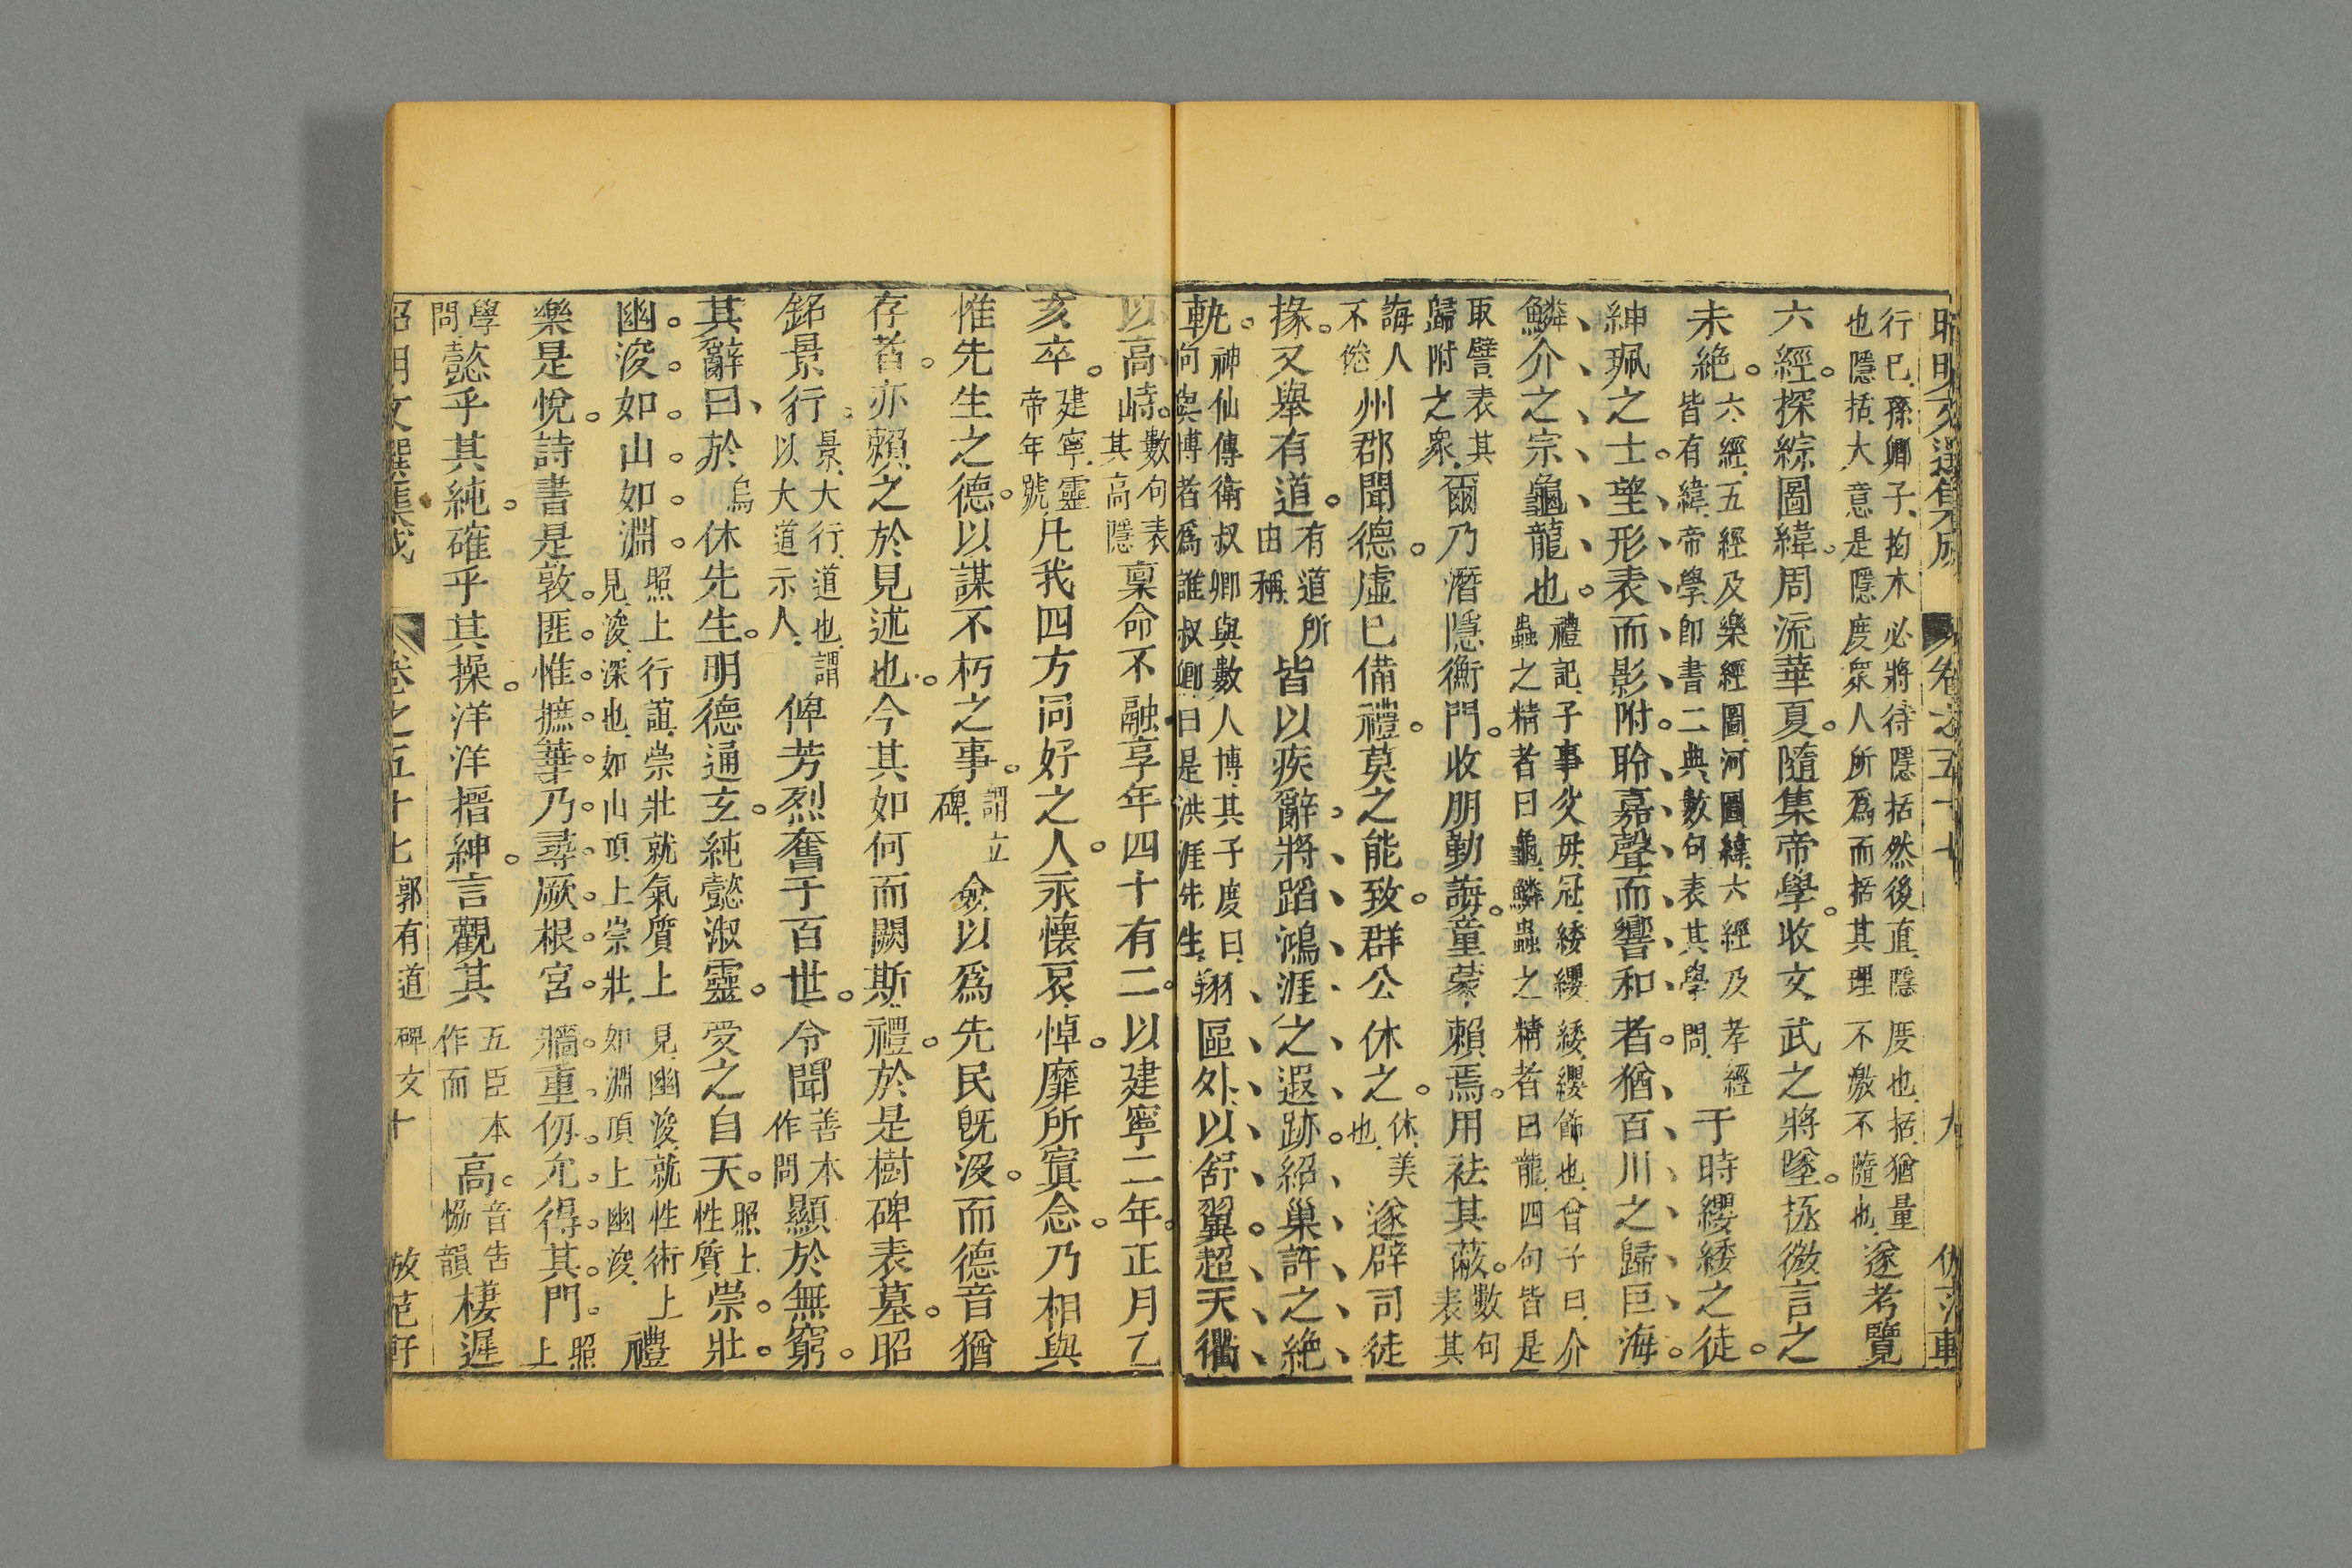 昭明文選集成 卷之五十七 九 倣范軒
行已孫卿子拘木必將待隱括然後直隱度也括猶量
也隱括大意是隱度衆人所爲而括其理不激不隨也遂考覽
六經探綜圖緯周流華夏隨集帝學收文武之將墜拯微言之
未絕六經五經及樂經圖河圖緯六經及孝經皆有緯帝學卽書二典數句表其學問于時纓緌之徒
紳珮之士望形表而影附聆嘉聲而響和者猶百川之歸巨海
鱗介之宗龜龍也禮記子事父母冠緌纓緌纓飾也曾子曰介蟲之精者曰龜鱗蟲之精者曰龍四句皆是
取譬表其歸附之衆爾乃潛隱衡門收朋勤誨童蒙賴焉用祛其蔽數句表其
誨人不倦州郡聞德虛已備禮莫之能致群公休之休美也遂辟司徒
掾又舉有道有道所由稱皆以疾辭將蹈鴻涯之遐跡紹巢許之絕
軌神仙傳衛叔卿與數人博其子度曰向與博者爲誰叔卿曰是洪涯先生翔區外以舒翼超天衢
以高峙數句表其高隱稟命不融享年四十有二以建寧二年正月乙
亥卒建寧靈帝年號凡我四方同好之人永懷哀悼靡所寘念乃相與
惟先生之德以謀不朽之事謂立碑僉以爲先民旣沒而德音猶
存者亦賴之於見述也今其如何而闕斯禮於是樹碑表墓昭
銘景行景大行道也謂以大道示人俾芳烈奮于百世令聞善本作問顯於無窮
其辭曰於烏休先生明德通玄純懿淑靈受之自天照上性質崇壯
幽浚如山如淵照上行誼崇壯就氣質上見幽浚就性術上見浚深也如山頂上崇壯如淵頂上幽浚禮
樂是悅詩書是敦匪惟摭華乃尋厥根宮牆重仞允得其門照上
學問懿乎其純確乎其操洋洋搢紳言觀其五臣本作而高音吿恊韻棲遲
昭明文選集成 卷之五十七 郭有道碑文 十 倣范軒